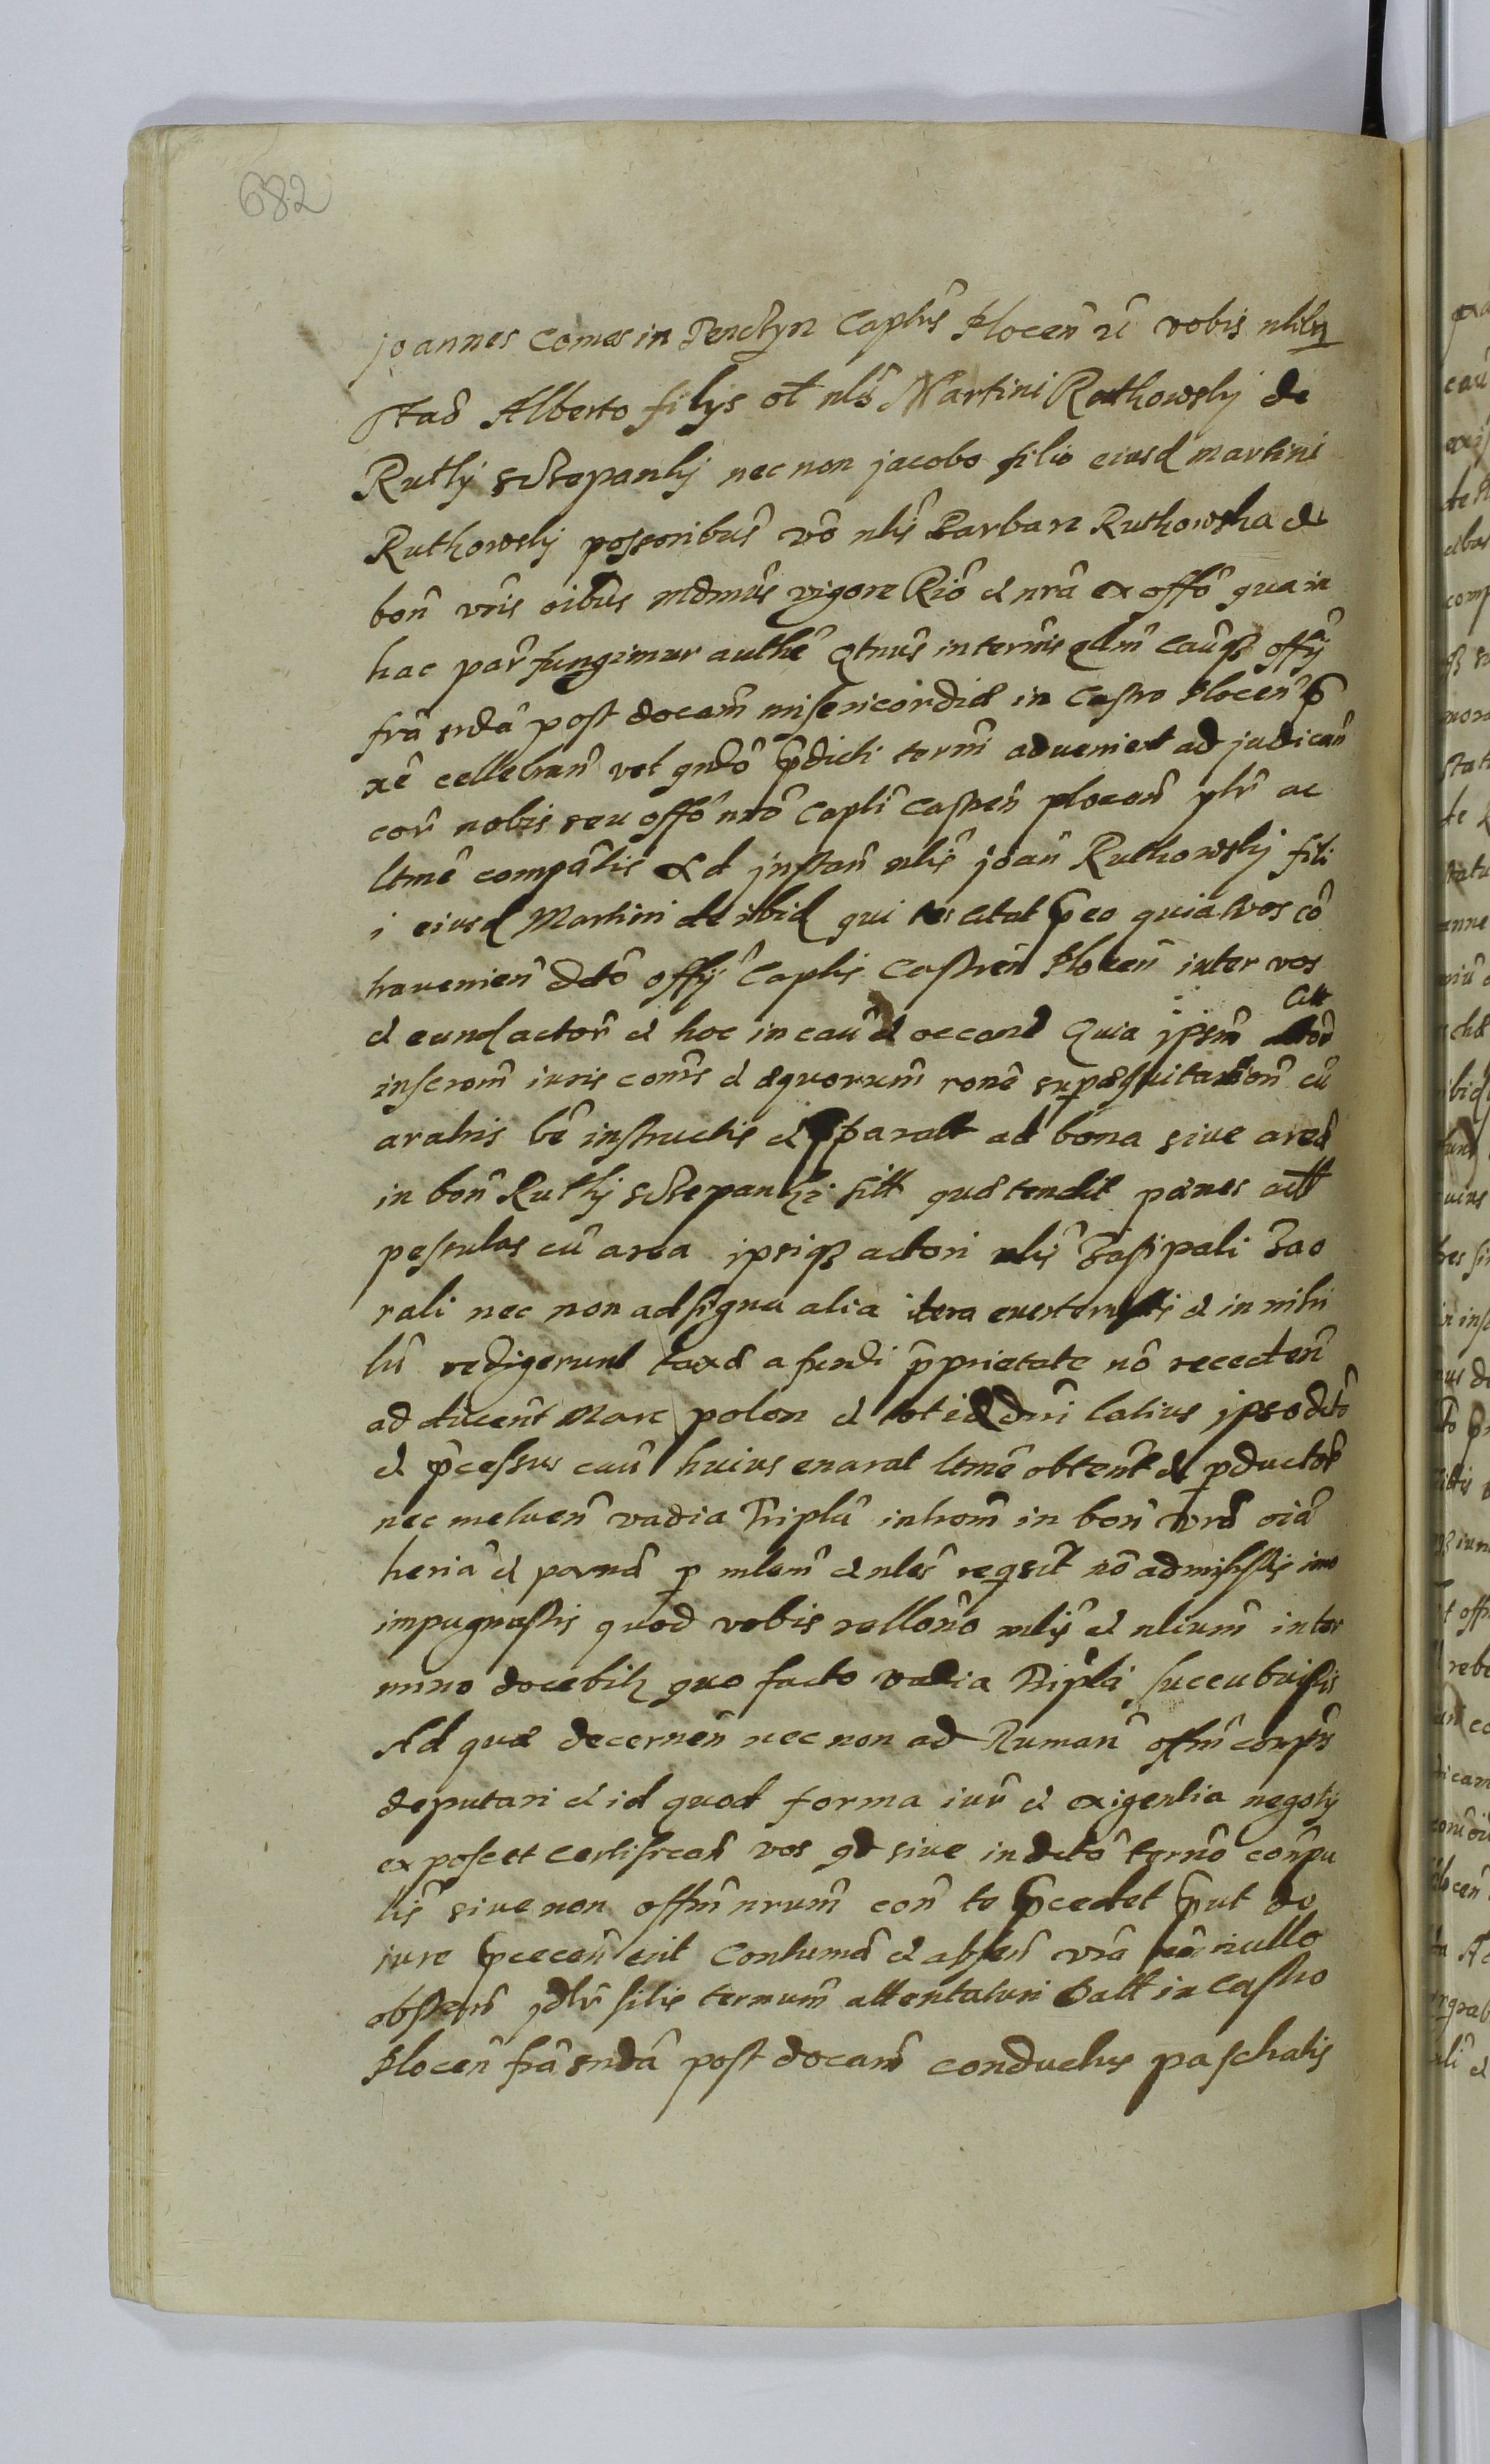 682
joannes Comes in Tenczyn Captũs Plocen̂ zĉ vobis nłibꝫ
Stað Alberto filys oł nłis Martini Rutkowsky de
Rutky sczepanky nec non jacobo filio eiusđ martini
Rutkowsky possoribuŝ vô nłiŝ Barbara Rutkowska de
bon̂ vr̂is oibuŝ mdmuŝ vigore Riô et nr̂a ex offô qua in
hac par̂ fungimur autheˆ qtnuŝ in termîs caûqꝫ offÿ
fr̂a sndâ post docam̂ misericordiæ in Castro Plocen̂ p̂
xê cellebran̂ vel qndô p̂dicti termî advenient ad judican̂
cor̂ nobis seu offô nrô Capłi Castren̂ plocen̂ płr̂ ac
ltmê compâtis Ad jnstan̂ nłiŝ joan̂ Rutkowsky fili
i eiusđ Martini de ibiđ qui vos citat p̂eo quia vos cô
travenien̂ dctô offÿ Captłis Castren̂ Plocen̂ inter vos
et eunđ actor̂ et hoc in caû et occone Quia ipsum̂ act actor̂
inserom̂ iuris com̂is et æquorum̂ ronê superæquitation̂ cû
aratris bê instructis et pparatt ad bona sive areâ
in bon̂ Rutky sczepanki sitt quæ tendit pænes aɫɫ
pessulas cû area ipsiqꝫ actori nłiŝ
rali nec non ad signa alia itera everteruntis et in nihi
lû redigerunt taxâ a fundi p̂prietate nô receden̂
ad ducent Marc polon et totiđ dnî latius ipso dctô
et p̂cessus caû huius enarat ltmê obtent et pductor̂
nec metuen̂ vadia Tripla in hom̂ in bon̂ vr̂â oiâ
heriâ et pœnâ p mlem̂ et nleŝ reqsit nô admisistis imo
impugnastis quod vobis rellonê mliŝ et nlium̂ in ter
mino docebitꝫ quo facto vadia Tripla succubuistis
Ad quæ decernen̂ nec non ad Ruman̂ offm̂ compŝ
deputari et id quod forma iur̂ et exigentia negoty
exposcet certifican̂ vos qd sive in dctô termô conpu
liŝ sive non offm̂ nrum̂ con̂ te p̂cedet p̂ut de
iure p̂ceden̂ erit Contumâ et absen̂ vr̂a nullo
obsten̂ similis termum̂ attentaturi Datt in Castro
Plocen̂ fr̂a sndâ post docam̂ conductus paschatis